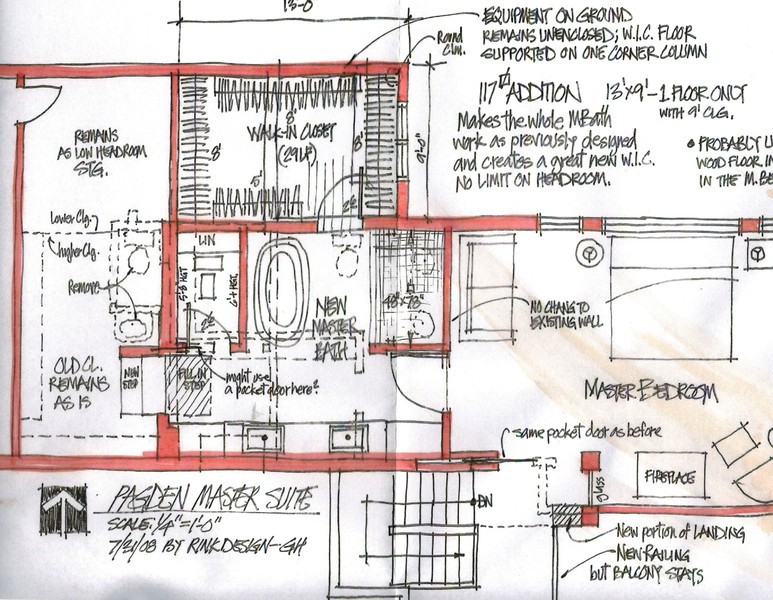 13'-0"
EQUIPMENT ON GROUND
REMAINS UNENCLOSED; W.I.C. FLOOR
SUPPORTED ON ONE CORNER COLUMN
Round
Clm.
117 ADDITION 13'x9'-1 FLOOR ONLY
WITH 9' CLG.
Makes the whole MBath
work as previously designed
and creates a great new W.I.C.
NO LIMIT ON HEADROOM.
• PROBABLY
WOOD FLOOR IN
IN THE M.BE
9'-0"
REMAINS
AS LOW HEADROOM
STG.
8'
WALK-IN CLOSET
(29LF)
8'
8'
5'
26
Lower Clg.
higher Clg.
Remove
LIN
5'-8" HGT
6'-4" HGT.
26
NEW
MASTER
BATH
NO CHANG TO
EXISTING WALL
OLD CL.
REMAINS
AS IS
NEW
STEP
FILL IN
STEP
might use
a pocket door here?
MASTER BEDROOM
same pocket door as before
FIREPLACE
glass
DN
PAGDEN MASTER SUITE
SCALE: 1/4"=1'-0"
7/31/08 BY RINKDESIGN-GH
New portion of LANDING
NEW RAILING
but BALCONY STAYS